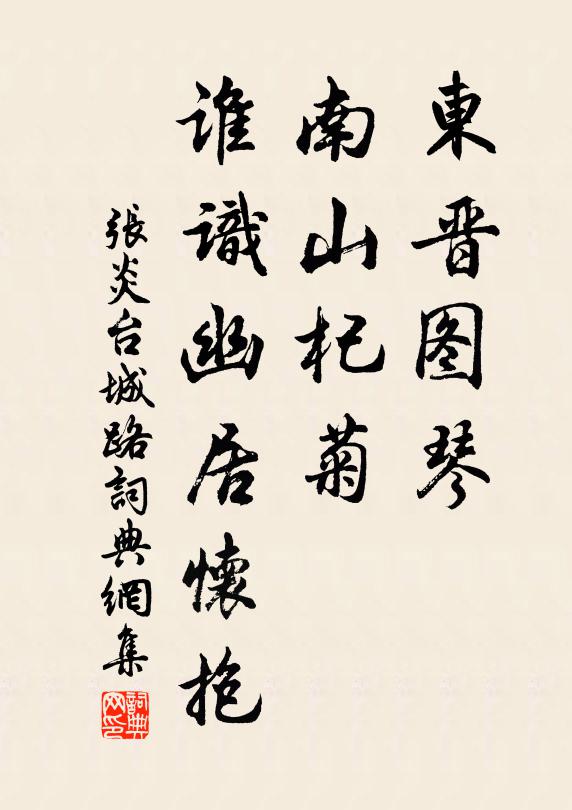 東晋图琴
南山杞菊
谁識幽居懷抱
張炎台城路詞典網集
詞典网印